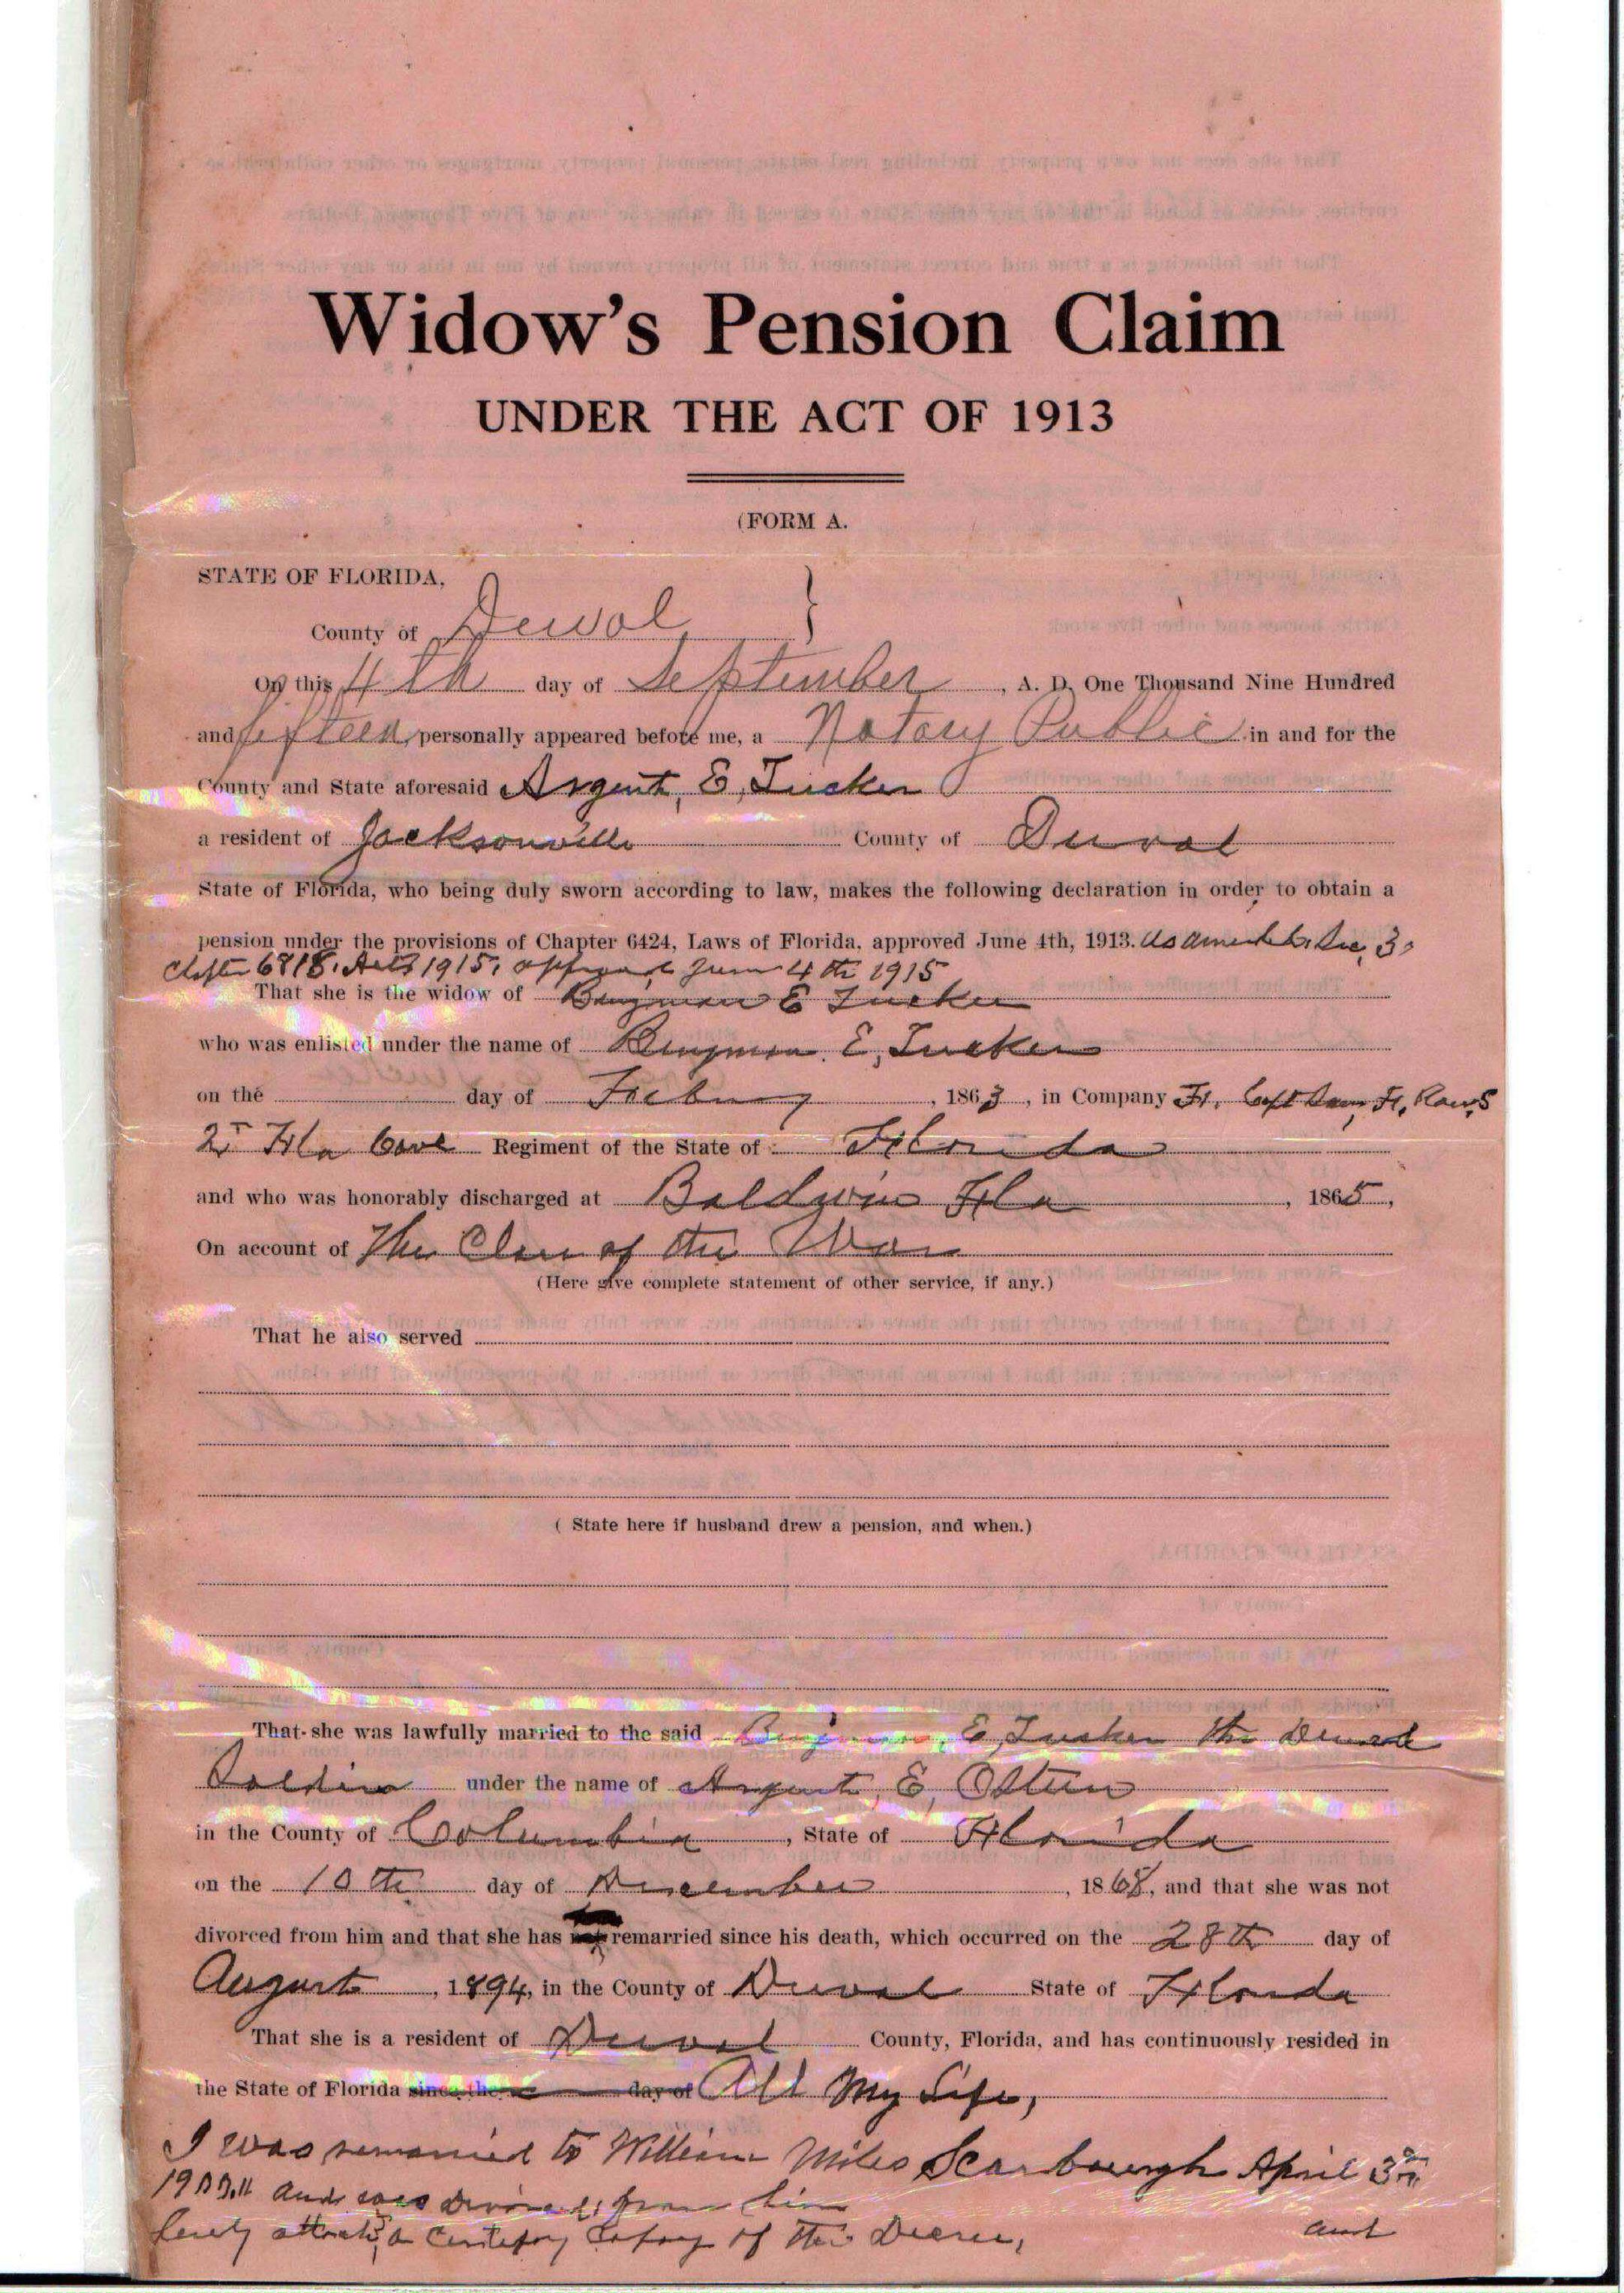 Widow's Pension Claim
UNDER THE ACT OF 1913
(FORM A.
STATE OF FLORIDA,
County of Duval }
On this 4th day of September, A. D. One Thousand Nine Hundred
and fifteen, personally appeared before me, a Notary Public in and for the
County and State aforesaid Argent, E, Tucker
a resident of Jacksonville County of Duval
State of Florida, who being duly sworn according to law, makes the following declaration in order to obtain a
pension under the provisions of Chapter 6424, Laws of Florida, approved June 4th, 1913. as amended Sec, 3,
Chapter 6818, Acts 1915, approved June 4th 1915
That she is the widow of Benjman E Tucker
who was enlisted under the name of Benjman. E, Tucker
on the day of Febury, 1863, in Company F, Capt Sam, F, Rows
2nd Fla Cave Regiment of the State of Florida
and who was honorably discharged at Baldwin Fla, 1865,
On account of The Close of the War
(Here give complete statement of other service, if any.)
That he also served
( State here if husband drew a pension, and when.)
That she was lawfully married to the said Benjman, E, Tucker the
Soldier under the name of Argent, E, Osteen
in the County of Columbia, State of Florida
on the 10th day of December, 1868, and that she was not
divorced from him and that she has remarried since his death, which occurred on the 28th day of
August, 1894, in the County of Duval State of Florida
That she is a resident of Duval County, Florida, and has continuously resided in
the State of Florida since the day of All My Life,
I was remarried to William Miles Scarbourgh April 3rd
and was Divorced from him
herely attach a copy of the Decree, and